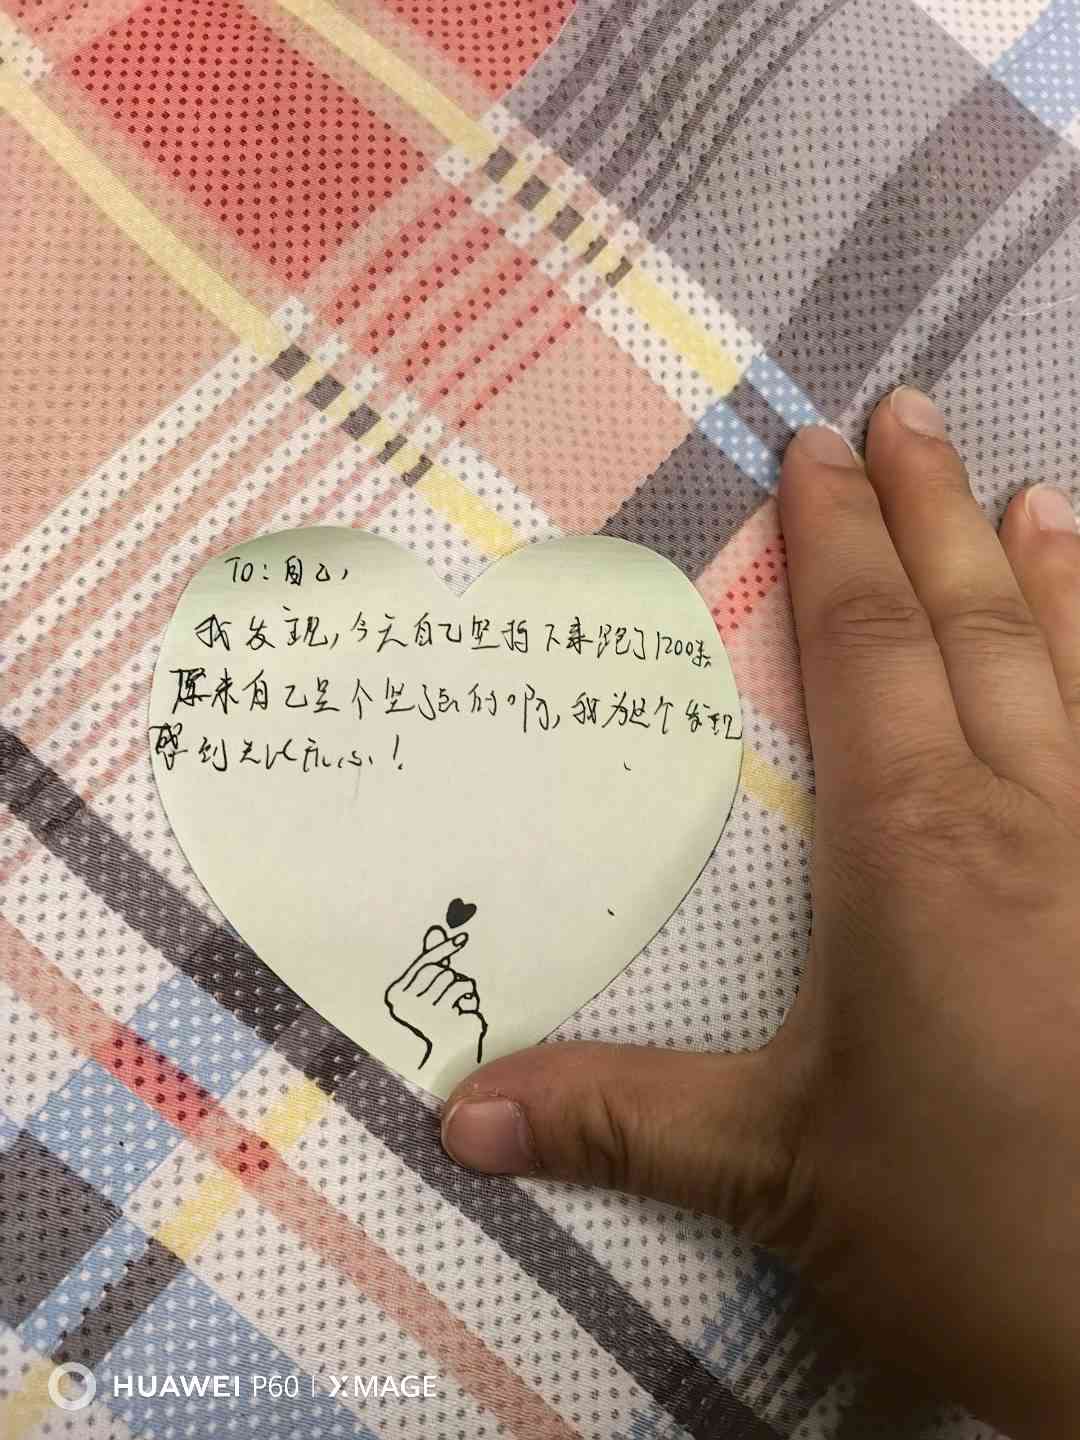 TO：自己，
我发现，今天自己坚持下来跑了1200米
原来自己是个坚强的啊，我为这个发现
感到无比开心！
HUAWEI P60 | XMAGE